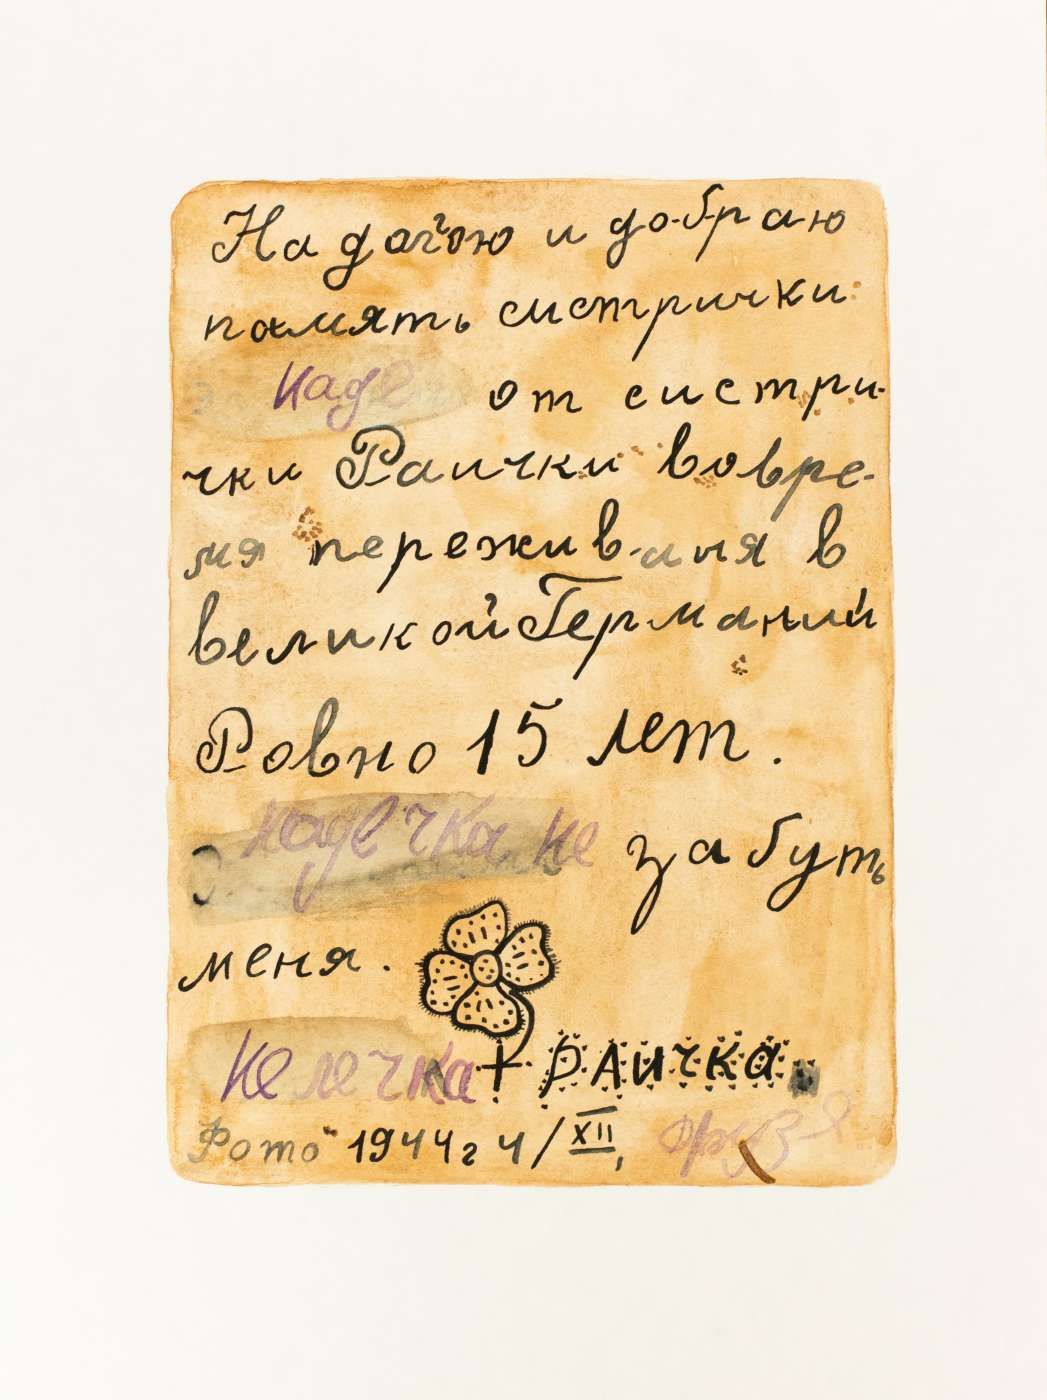 На долгою и добраю
память систрички
Наде от систри-
чки Раички вовре-
мя переживаня в
великой Германий
Ровно 15 лет.
Надечка не забуть
меня.
Нелечка + РАичка
Фото 1944г 4/XII,